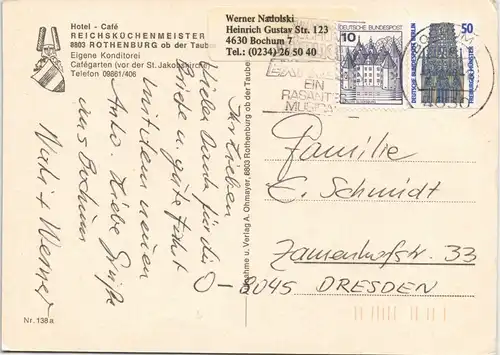 Hotel - Café
REICHSKÜCHENMEISTER
8803 ROTHENBURG ob der Taube
Eigene Konditorei
Cafégarten (vor der St. Jakobskirche)
Telefon 09861/406
Werner Nadolski
Heinrich Gustav Str. 123
4630 Bochum 7
Tel.: (0234) 26 50 40
DEUTSCHE BUNDESPOST
10
50
DEUTSCHE BUNDESPOST BERLIN
FREIBURGER MÜNSTER
EIN
RASANTES
MUSICAL
4630
Ihr Lieben
Vielen Dank für die
Briefe u. gute Fahrt
mit dem neuen
Auto. Liebe Grüße
aus Bochum
+ Werner
Aufnahme u. Verlag A. Ohmayer, 8803 Rothenburg ob der Tauber
Familie
E. Schmidt
Zamenhofstr. 33
O-8045 DRESDEN
Nr. 138a